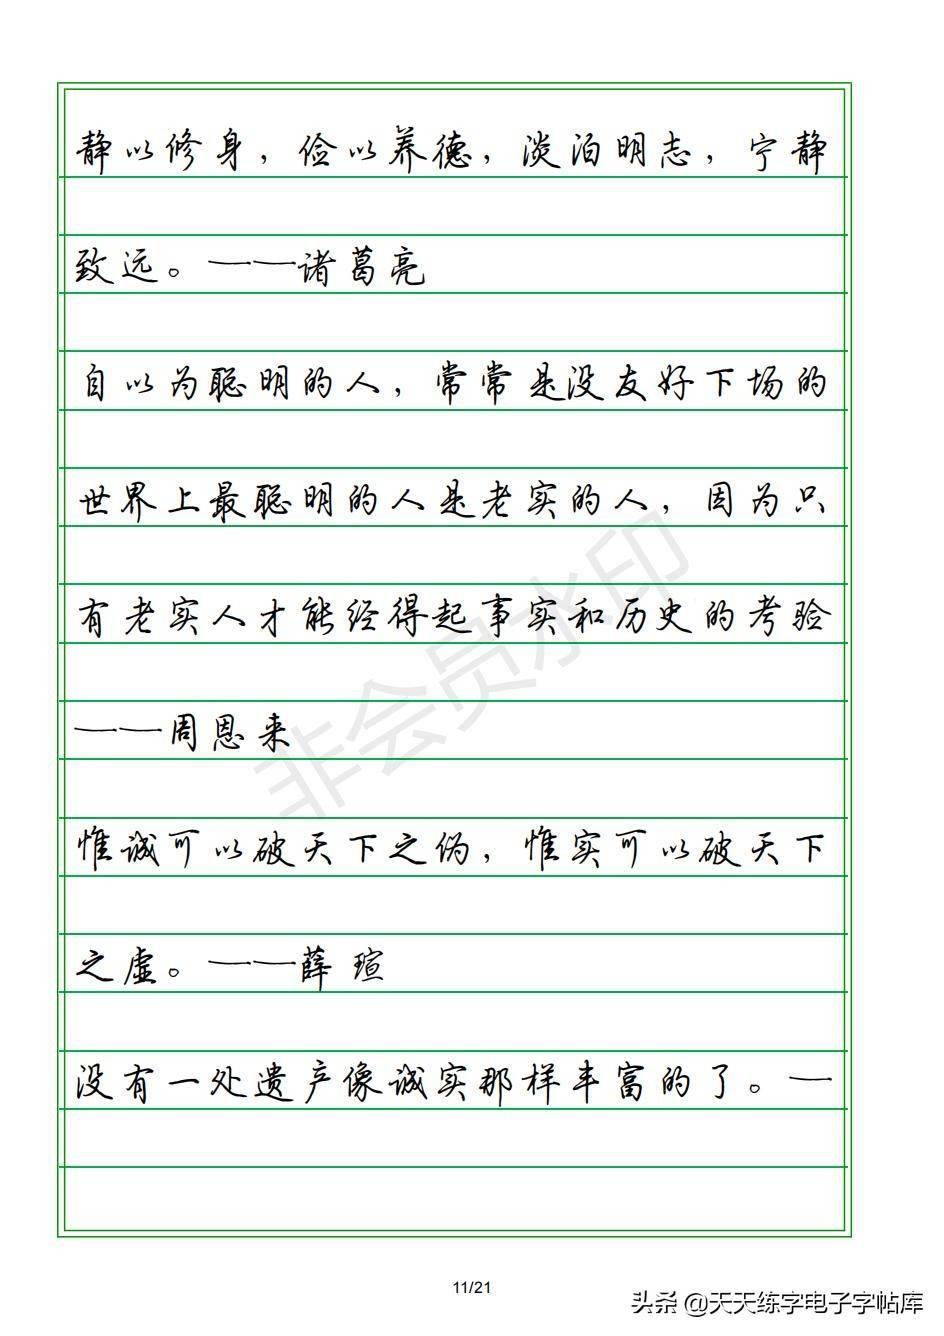 静以修身，俭以养德，淡泊明志，宁静
致远。——诸葛亮
自以为聪明的人，常常是没友好下场的
世界上最聪明的人是老实的人，因为只
有老实人才能经得起事实和历史的考验
——周恩来
惟诚可以破天下之伪，惟实可以破天下
之虚。——薛瑄
没有一处遗产像诚实那样丰富的了。—
非会员水印
11/21
头条 @天天练字电子字帖库